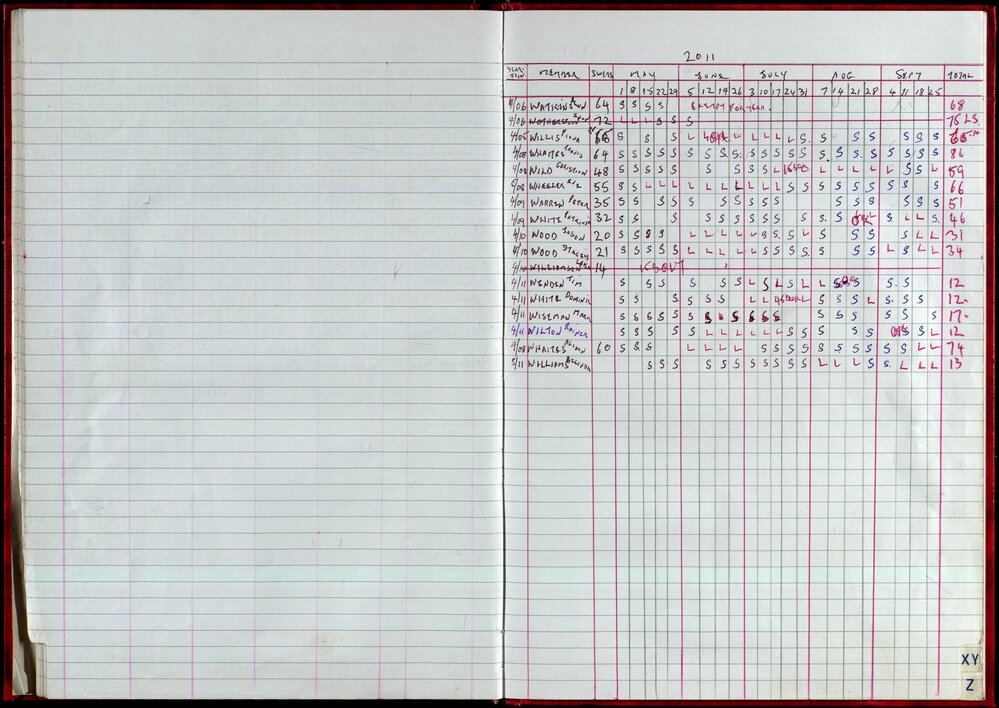 2011
YEAR JOIN MEMBER SWIMS MAY JUNE JULY AUG SEPT TOTAL
1 8 15 22 29 5 12 19 26 3 10 17 24 31 7 14 21 28 4 11 18 25
4/06 WATKINSON 64 S S S S EXEMPT FOR YEAR. 68
4/06 72 L L L S S S 75 LS
4/05 WILLIS FIONA S S S L L L L L L S S S S S S S
4/08 WHAITES TRAVIS 64 S S S S S S S S S S S S S S S S S S S S S S 86
4/08 WILD CHRISTIAN 48 S S S S S S S S S L L L L L L S S L 59
9/08 WHEELER LIZ 55 S S L L L L L L L L L L S S S S S S S S S 66
4/09 WARREN PETER 35 S S S S S S S S S S S S S S S 51
4/09 WHITE 32 S S S S S S S S S S S L S L L S 46
4/10 WOOD JASON 20 S S S S L L L L L S S S L S S S S S L L 31
4/10 WOOD STACEY 21 S S S S S L L L L L S S S S S S S S L S L L 34
4/10 WILLIAMSON 14 KSOUT
4/11 WENDEN TIM S S S S S S L S L S L L S S S 12
4/11 WHITE DOMINIC S S S S S S L L L S S S L S S S 12
4/11 WISEMAN MARK S S S S S S S L S S S S S S S S S S 17
4/11 WILTON S S S S S L L L L L L S S S S S S L 12
4/08 WHAITES ALISON 60 S S S L L L L S S S S S S S S S S L L 74
5/11 WILLIAMS BELINDA S S S S S S S S S S S L L L S S L L L 13
XY
Z